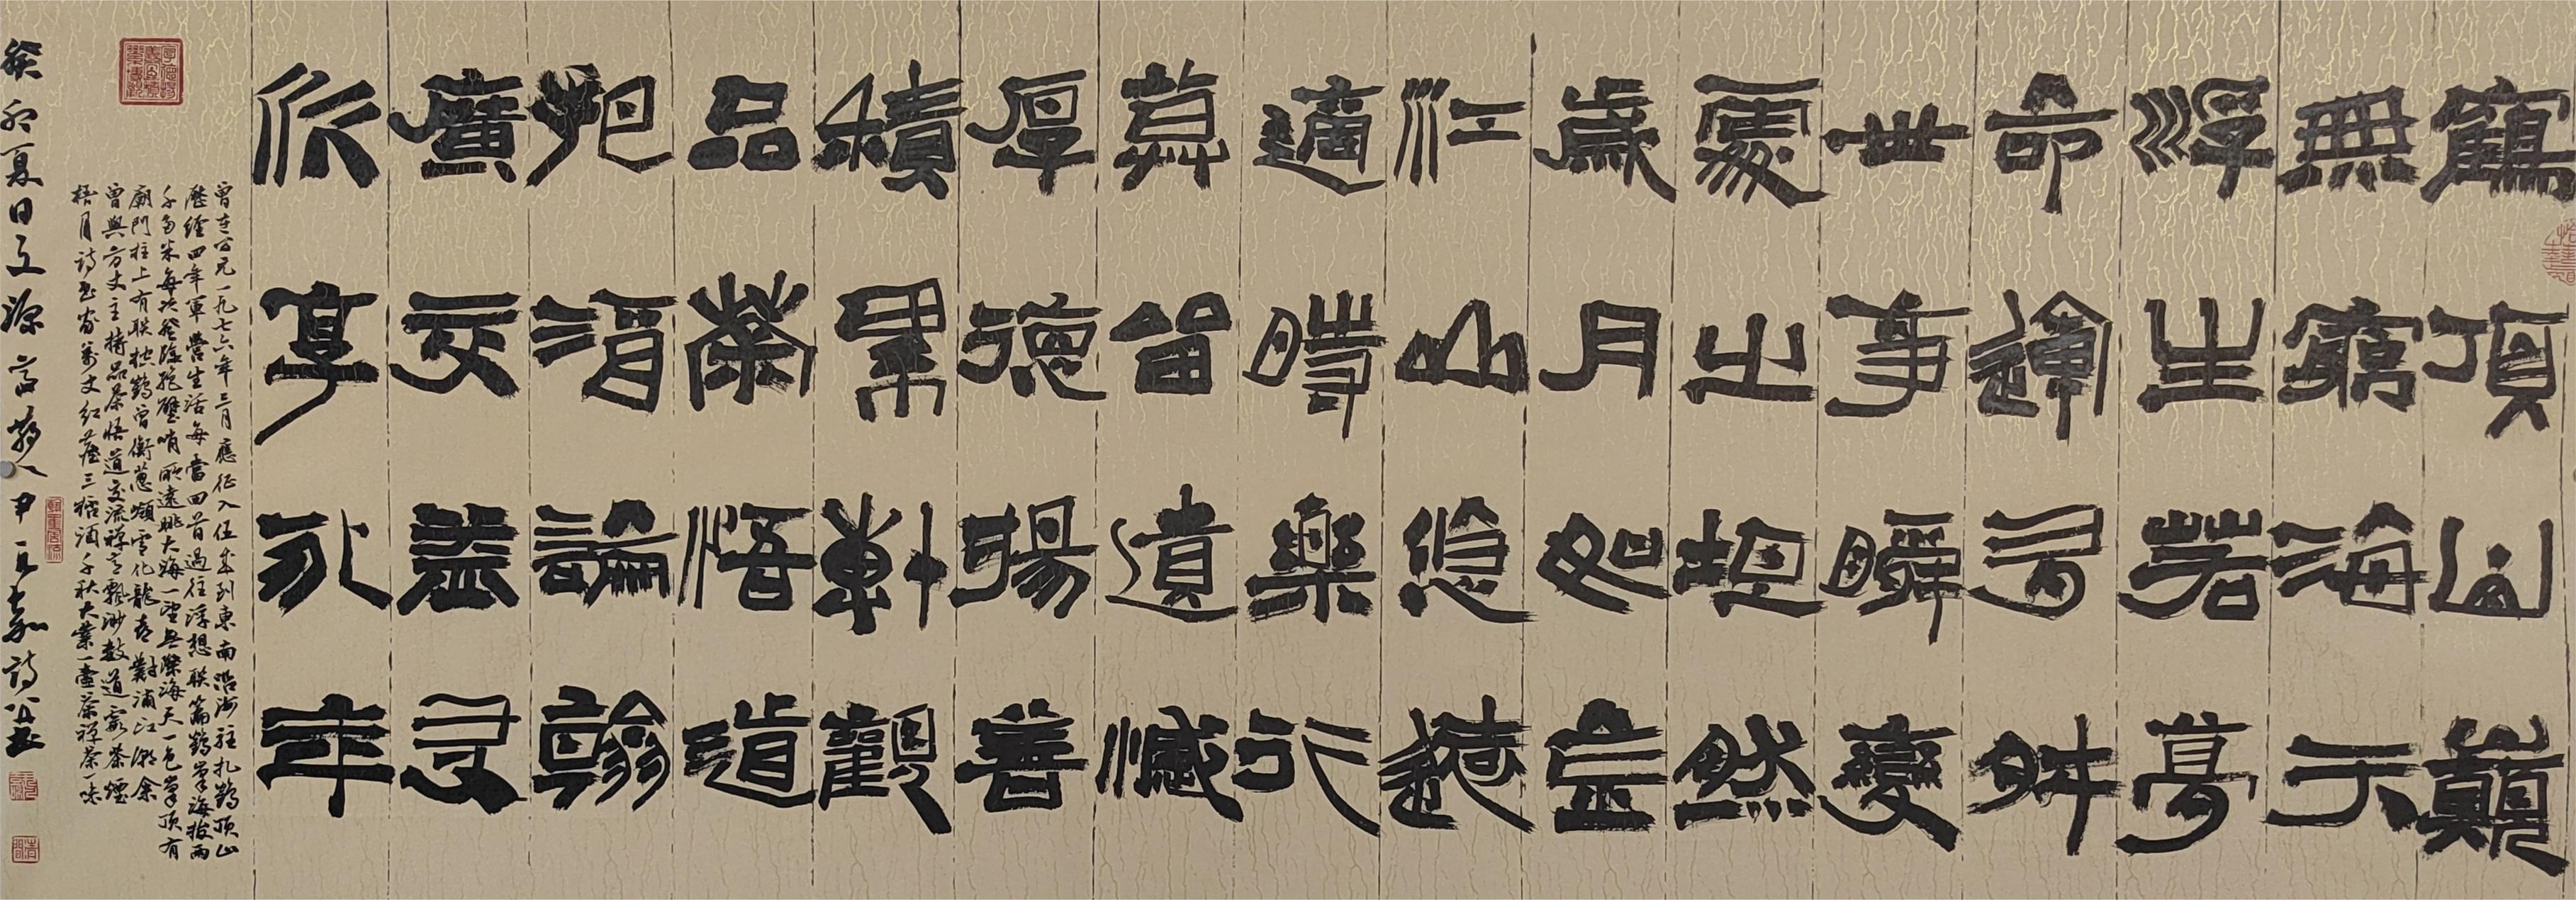 鶴頂山巔
無窮海天
浮生若夢
命運多舛
世事瞬變
處之坦然
歲月如
江山悠遠
適時樂行
莫留遺憾
厚德揚善
積累博觀
品茶悟道
把酒論翰
廣交益友
享永年
曾在公元一九七六年三月應征入伍來到東南沿海駐扎鶴頂山
歷經四年軍營生活每當回首過往浮想联篇鶴峯海拔兩
千多米每次登臨絕壁哨所遠眺大海一望無際海天一色峯頂有
廟門柱上有联松鶴曾銜蔥嶺雪化龍對浦江潮余
曾與方丈主持品茶悟道交流禪言飄渺道霧茶煙
梧月詩書家萬丈紅塵三杯酒千秋大業一壺茶禪茶一味
癸卯夏日於源尹元嘉詩並書